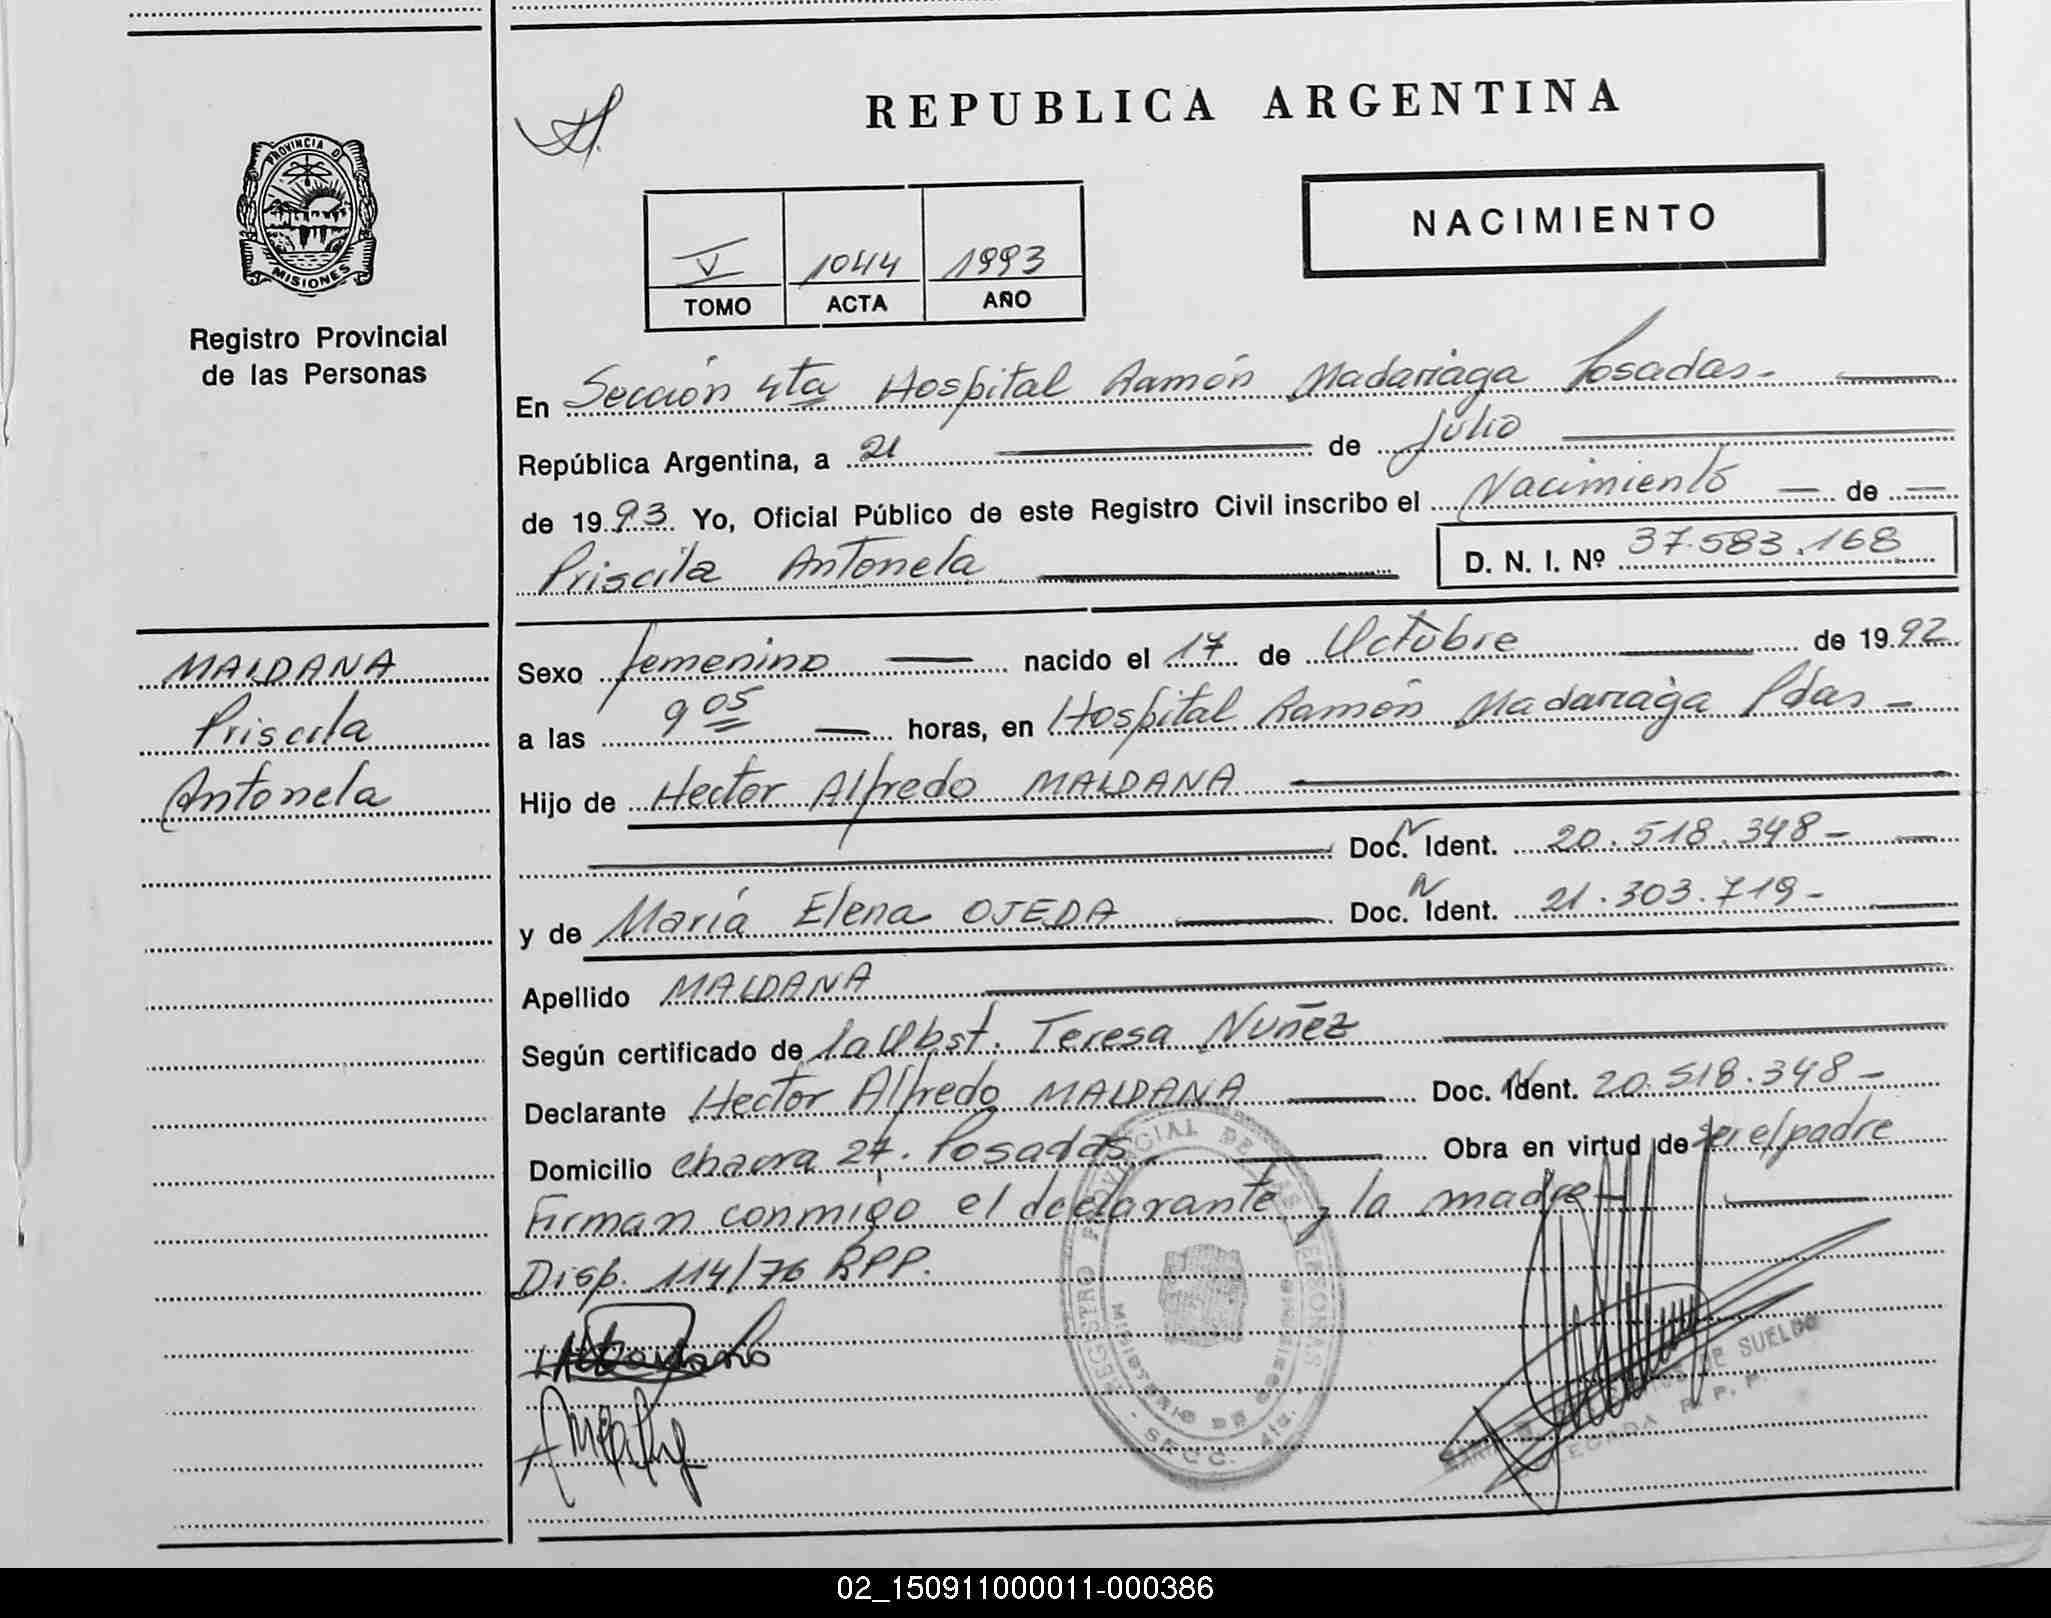 REPUBLICA ARGENTINA
PROVINCIA D
MISIONES
Registro Provincial
de las Personas
NACIMIENTO
V 1044 1993
TOMO ACTA AÑO
En Sección 4ta Hospital Ramón Madariaga Posadas-
República Argentina, a 21 de Julio
de 1993 Yo, Oficial Público de este Registro Civil inscribo el Nacimiento de
Priscila Antonela D. N. I. Nº 37.583.168
MALDANA
Priscila
Antonela
Sexo femenino nacido el 17 de Octubre de 1992
a las 9 05 horas, en Hospital Ramón Madariaga Pdas-
Hijo de Hector Alfredo MALDANA
Doc. N Ident. 20.518.348-
y de María Elena OJEDA Doc. N Ident. 21.303.719-
Apellido MALDANA
Según certificado de la Obst. Teresa Nuñez
Declarante Hector Alfredo MALDANA Doc. Ident. 20.518.348-
Domicilio chacra 27. Posadas. Obra en virtud de ser el padre
Firman conmigo el declarante y la madre
Disp. 114/76 RPP.
REGISTRO PROVINCIAL DE LAS PERSONAS
SECC. 4ta.
DE SUELDO
R. P. P.
02_150911000011-000386